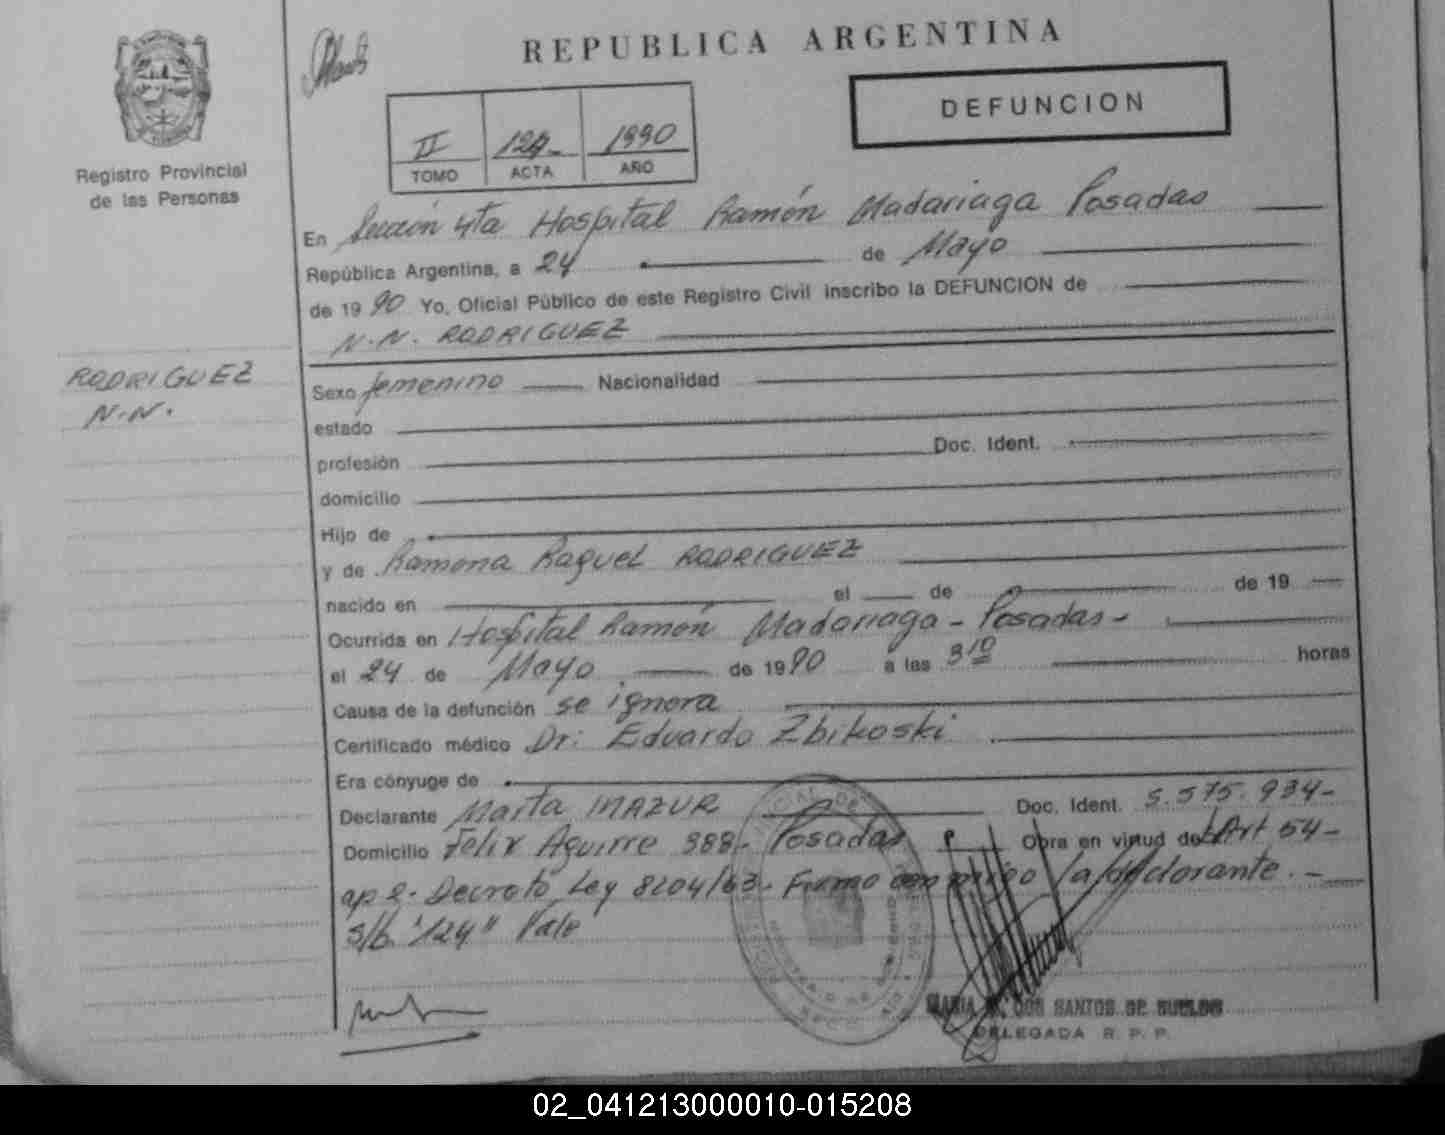 REPUBLICA ARGENTINA
DEFUNCION
Registro Provincial
de las Personas
II 124 1990
TOMO ACTA AÑO
En Sección 4ta Hospital Ramón Madariaga Posadas
República Argentina, a 24 de Mayo
de 1990 Yo, Oficial Público de este Registro Civil inscribo la DEFUNCION de
N.N. RODRIGUEZ
RODRIGUEZ
N.N.
Sexo femenino Nacionalidad
estado
profesión Doc. Ident.
domicilio
Hijo de
y de Ramona Raquel RODRIGUEZ
nacido en el de de 19
Ocurrida en Hospital Ramón Madariaga - Posadas -
el 24 de Mayo de 1990 a las 3 10 horas
Causa de la defunción se ignora
Certificado médico Dr: Eduardo Zbikoski
Era cónyuge de
Declarante Marta MAZUR Doc. Ident. 5.575.934-
Domicilio Felix Aguirre 388- Posadas Obra en virtud de Art 54-
ap 2- Decreto Ley 8204/63- Firma conmigo la declarante.-
s/b "124" Vale
MARIA DOS SANTOS DE
DELEGADA R. P. P.
02_041213000010-015208